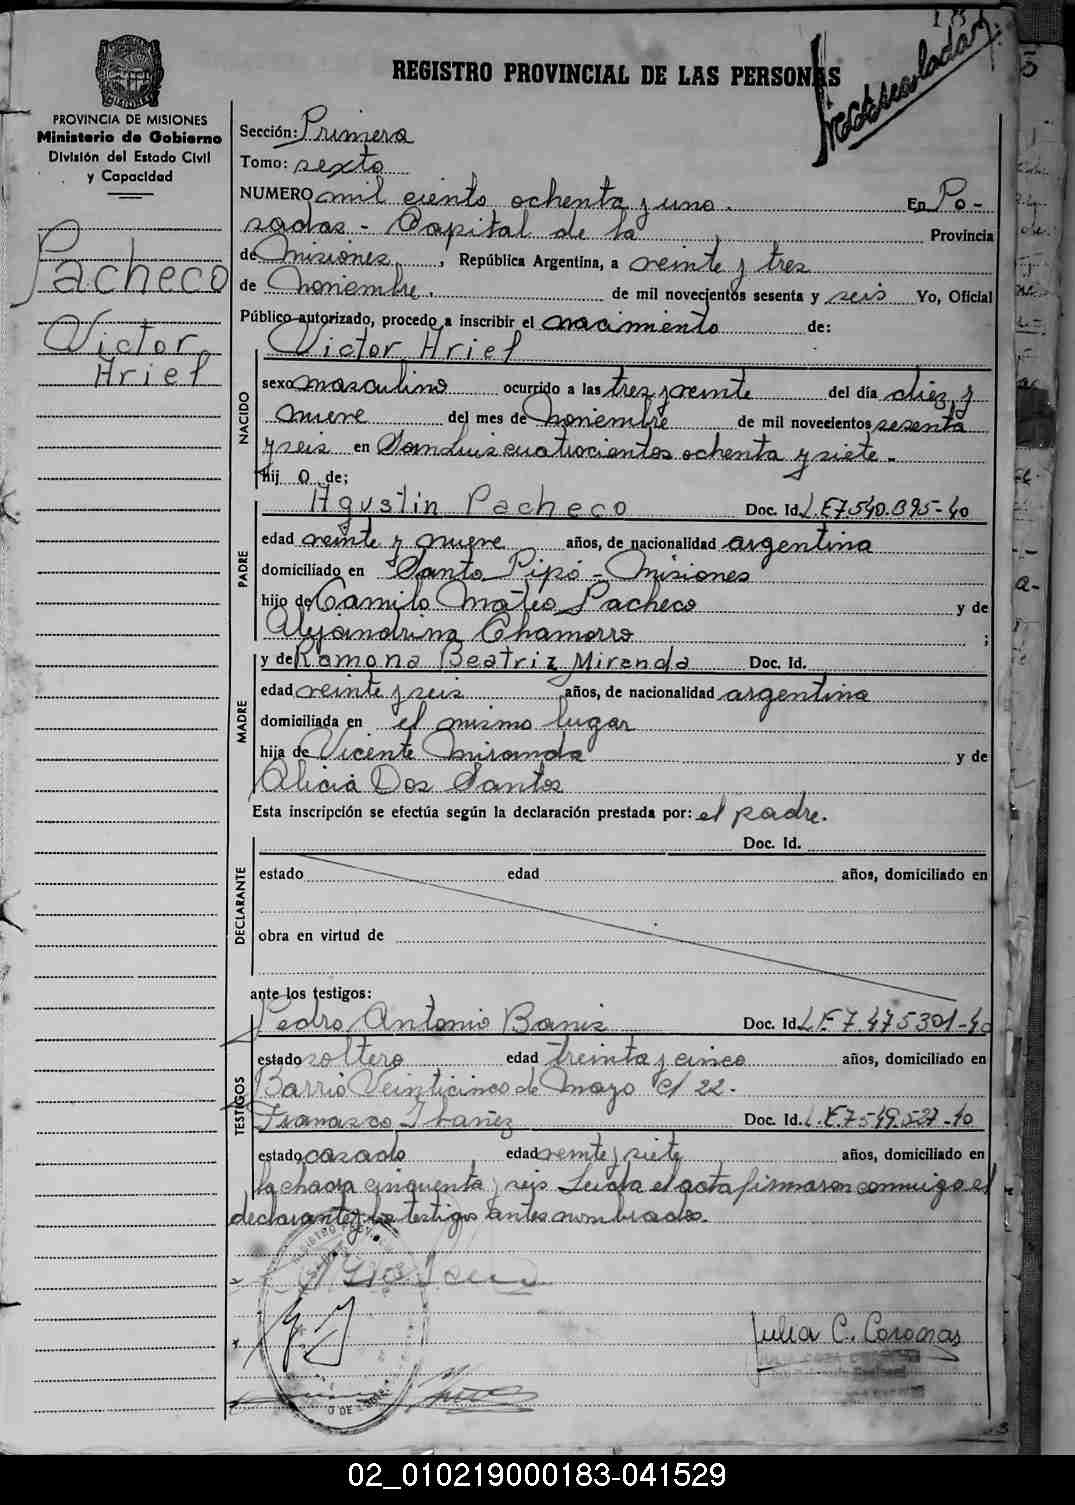 REGISTRO PROVINCIAL DE LAS PERSONAS
PROVINCIA DE MISIONES
Ministerio de Gobierno
División del Estado Civil
y Capacidad
Pacheco
Victor
Ariel
Sección: Primera
Tomo: sexto
NUMERO mil ciento ochenta y uno. En Po-
sadas - Capital de la Provincia
de Misiones, República Argentina, a veinte y tres
de Noviembre. de mil novecientos sesenta y seis Yo, Oficial
Público autorizado, procedo a inscribir el nacimiento de:
Victor Ariel
NACIDO
sexo masculino ocurrido a las tres y veinte del día diez y
nueve del mes de Noviembre de mil novecientos sesenta
y seis en San Luis cuatrocientos ochenta y siete.-
hij o de;
PADRE
Agustin Pacheco Doc. Id. L.E 7.540.095-40
edad veinte y nueve años, de nacionalidad argentina
domiciliado en Santo Pipó - Misiones
hijo de Camilo Mateo Pacheco y de
Alejandrina Chamorro ;
MADRE
y de Ramona Beatriz Miranda Doc. Id.
edad veinte y seis años, de nacionalidad argentina
domiciliada en el mismo lugar
hija de Vicente Miranda y de
Alicia Dos Santos
Esta inscripción se efectúa según la declaración prestada por: el padre.
DECLARANTE
Doc. Id.
estado edad años, domiciliado en
obra en virtud de
ante los testigos:
TESTIGOS
Pedro Antonio Doc. Id. L.E 7.475301-40
estado soltero edad treinta y cinco años, domiciliado en
Barrio Veinticinco de Mayo c/ 22.-
Francisco Ibañez Doc. Id. L.E.7549.527-40
estado casado edad veinte y siete años, domiciliado en
la chacra cinquenta y seis Leida el acta firmaron conmigo el
declarante y los testigos antes nombrados.
Julia C. Coronas
02_010219000183-041529